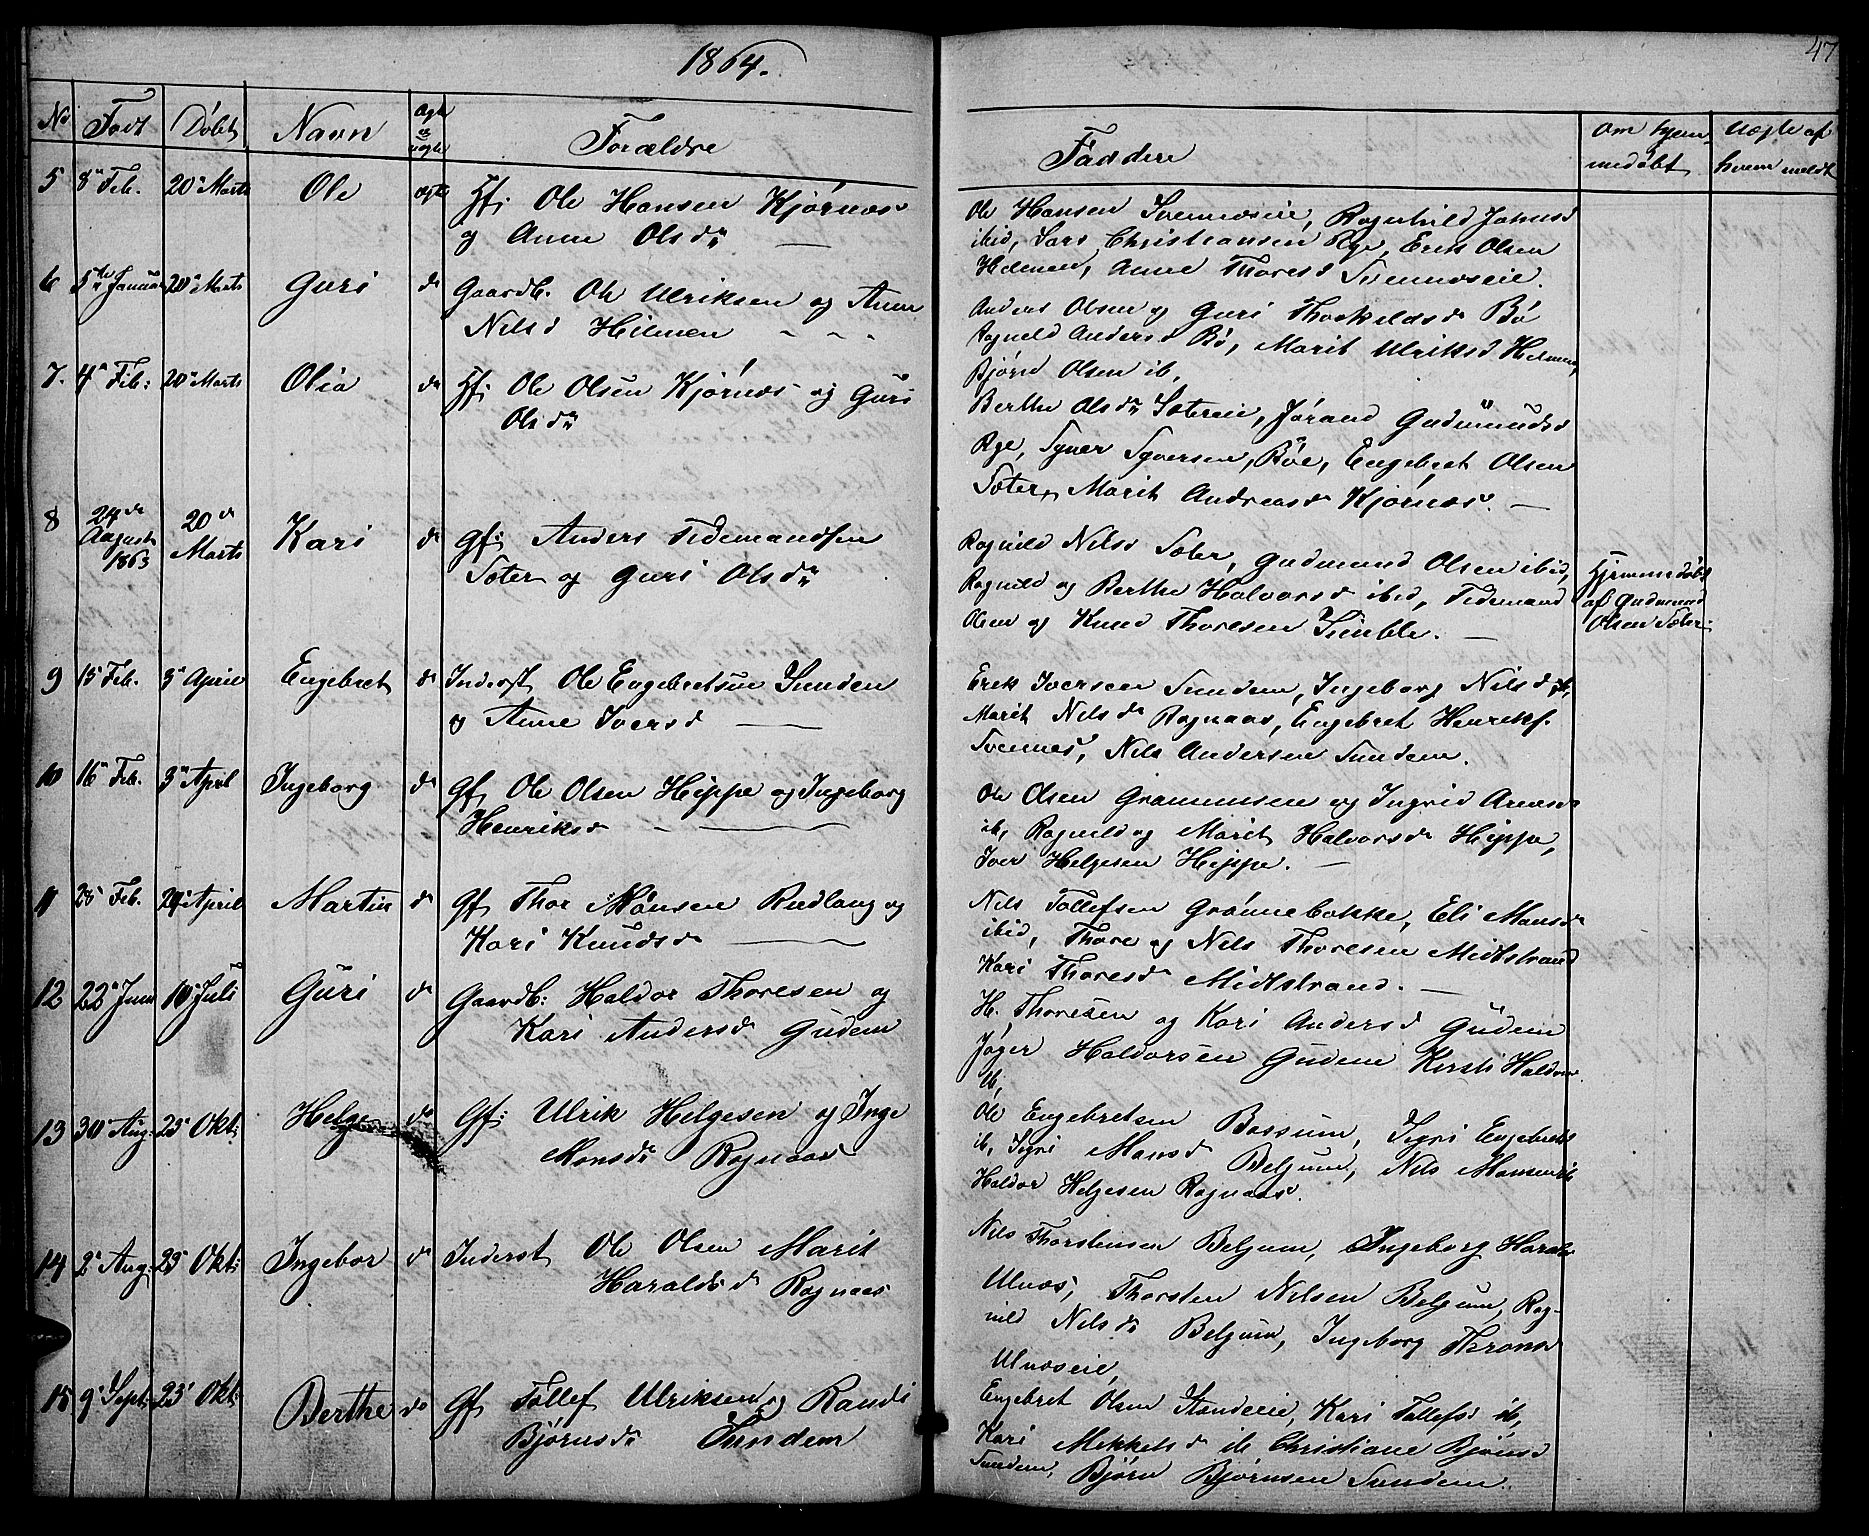 1864.
47
No Født Døbt Navn Ægte o uægte Forældre
Faddere Om hjemmedøbt Uægte af hvem meldt
5 8de Feb. 20de Marts Ole ægte Hf. Ole Hansen Kjørnæs
og Anne Olsdr
Ole Hansen Svennæseie, Ragnhild Johnsd
ibid, Lars Christiansen Rye, Erik Olsen
Helmen, Anne Thoresd Svennæseie.
6 5te Januar 20de Marts Guri do Gaardb. Ole Ulriksen og Anne
Nilsd Hilmen
Anders Olsen og Guri Thorkildsdr Bø
Ragnild Andersd Bø, Marit Ulriksd Helmen,
Bjørn Olsen ib.
7. 4de Feb: 20de Marts Olia do Hf: Ole Olsen Kjørnæs og Guri
Olsdr
Berthe Olsdr Sætereie, Jørand Gudmundsd
Rye, Syver Syversen, Bøe, Engebret Olsen
Sæter, Marit Andreasdr Kjørnæs. —
8 24de August 1863 20de Marts Kari do Gf: Anders Tidemandsen
Sæter og Guri Olsdr
Ragnild Nilsd Sæter, Gudmund Olsen ibid,
Ragnild og Berthe Halvorsd ibid, Tidemand
Olsen og Knud Thoresen Semble. —
Hjemmedøbt
af Gudmund
Olsen Sæter.
9 15 Feb. 3de April Engebret do Inderst Ole Engebretsen Sunden
og Anne Iversd —
Erik Iversen Sundem, Ingeborg Nilsd ib,
Marit Nilsdr Ragnaas, Engebret Henriks.
Svennes, Nils Andersen Sundem.
10 16de Feb. 3de April Ingeborg do Gf, Ole Olsen Hippe og Ingeborg
Henriksd
Ole Olsen og Ingrid Arnesdr
ib, Ragnild og Marit Halvorsdr Hippe,
Iver Helgesen Hippe. —
11 28 Feb. 24de April Martin do Gf Thor Månsen Rudlang og
Kari Knudsdr
Nils Tollefsen Grønnebakke, Eli Monsdr
ibid, Thore og Nils Thoresen Midtstrand
Kari Thoresdr Midtstrand. —
12 22de Juni 10de Juli Guri do Gaardb: Haldor Thoresen og
Kari Andersd Gudem
H. Thoresen og Kari Andersd Gudem
Jøger Haldorsen Gudem Kersti Haldors
ib.
13 30te Aug: 23de Okt: Helge do Gf: Ulrik Helgesen og Inge
Monsdr Ragnaas
Ole Engebretsen Bossum, Sigri Engebretsd
ib, Sigri Monsd Belgum, Nils Monsen ib
Haldor Helgesen Ragnaas.
14 2de Aug: 23de Okt: Ingebor do Inderst Ole Olsen Marit
Haraldsdr Ragnaas
Nils Thorstensen Belgum, Ingeborg Haralds
Ulnæs, Thorsten Nilsen Belgum, Rag-
nild Nilsdr Belgum, Ingeborg Thronds
Ulnæseie,
15 9de Sept. 23de Okt: Berthe do Gf Tollef Ulriksen og Randi
Bjørnsdr Sundem
Engebret Olsen Standeeie, Kari Tollefsd ib,
Kari Mekkelsd ib Christiane Bjørnsd
Sundem, Bjørn Bjørnsen Sundem.